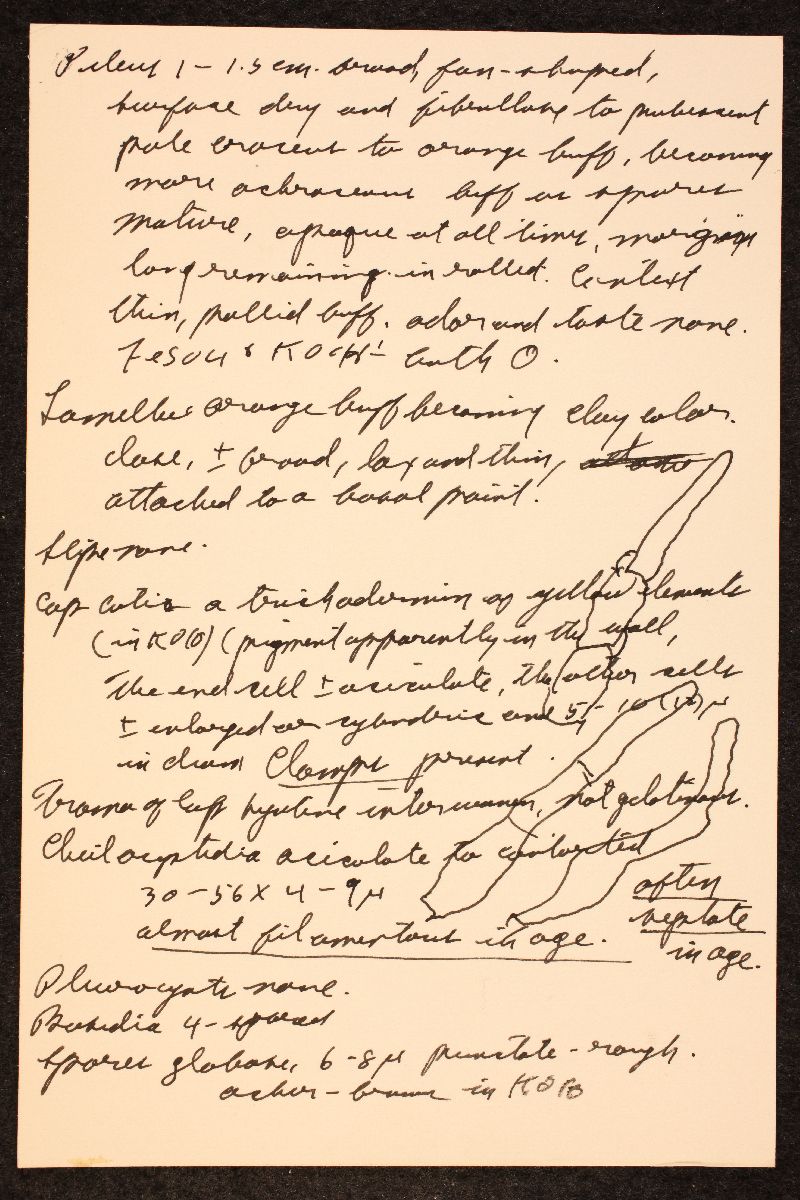 Pileus 1 – 1.5 cm. broad, fan-shaped,
surface dry and fibrillose to pubescent
pale croceus to orange buff, becoming
more ochraceous buff as spores
mature, opaque at all times, margin
long remaining inrolled. Context
thin, pallid buff. odor and taste none.
FeSO4 & KOH – both O.
Lamellae orange buff becoming clay color.
close, ± broad, lax and thin,
attached to a basal point.
Stipe none.
Cap cutis a trichodermium of yellow elements
(in KOH) (pigment apparently in the wall,
The end cell ± aciculate, the other cells
± enlarged or cylindric and 5 – 10 (12) μ
in diam Clamps present.
Trama of cap hyaline interwoven, not gelatinous.
Cheilocystidia aciculate to contorted
30 – 56 X 4 – 9 μ
often
almost filamentous in age.
septate
in age.
Pleurocysts none.
Basidia 4-spored
Spores globose, 6-8 μ punctate-rough.
ocher-brown in KOH